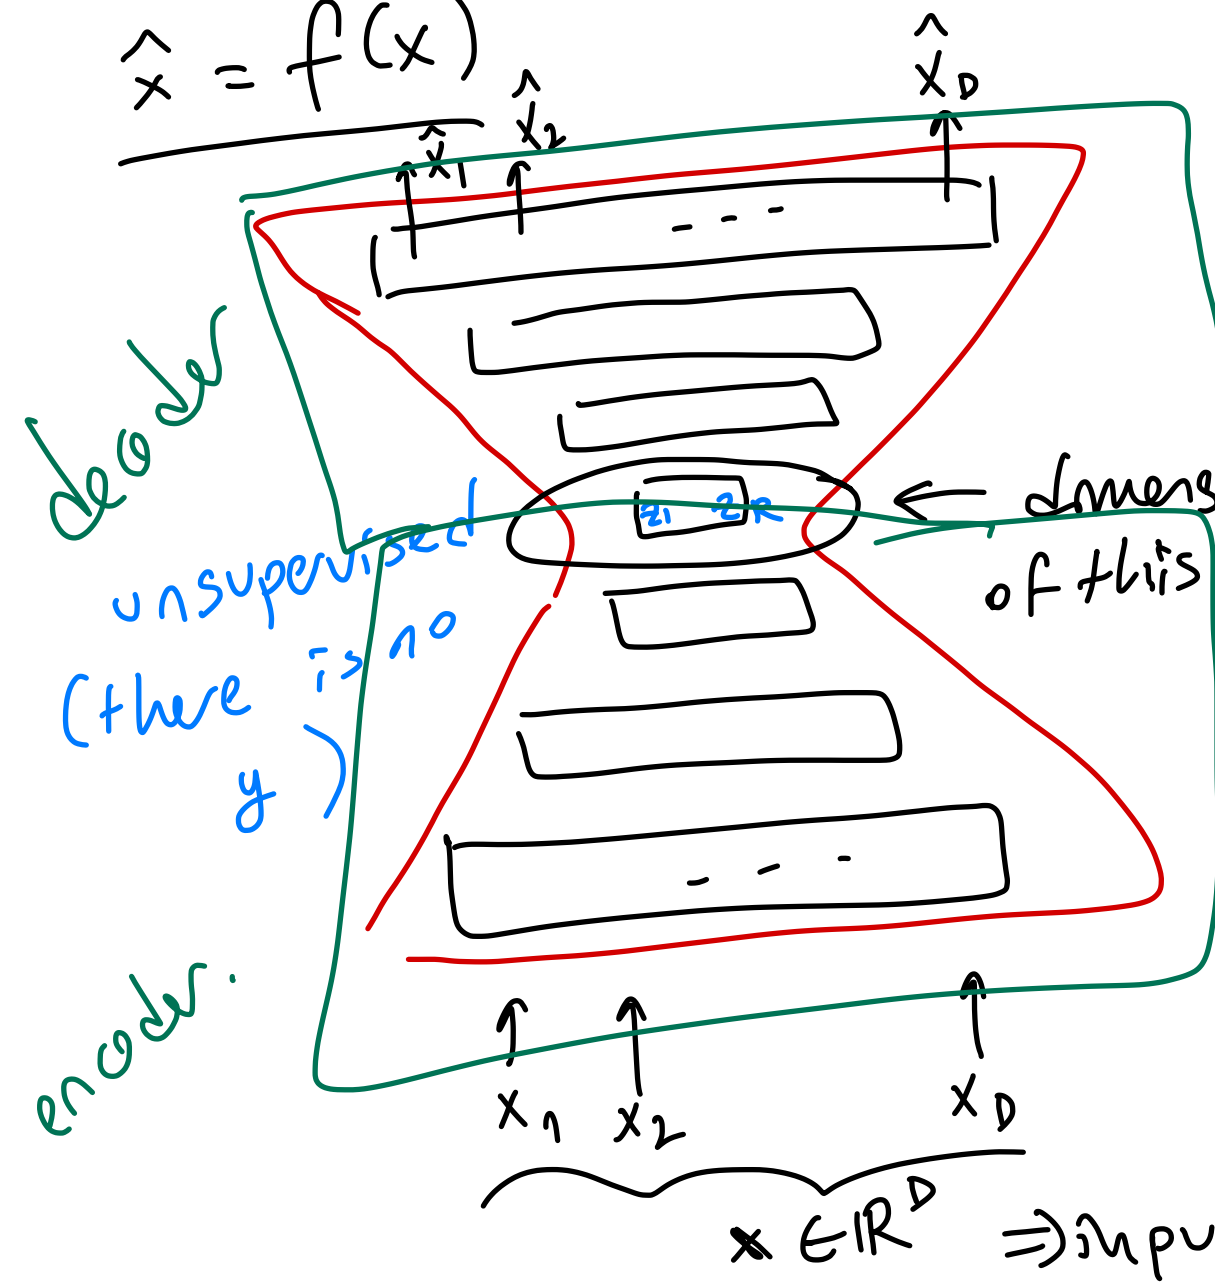 x̂ = f(x)
x̂₁ x̂₂ x̂_D
decoder
z₁ z_R
← dimens
of this
unsupervised
(there is no
y)
encoder.
x₁ x₂ x_D
x ∈ ℝᴰ ⇒ inpu